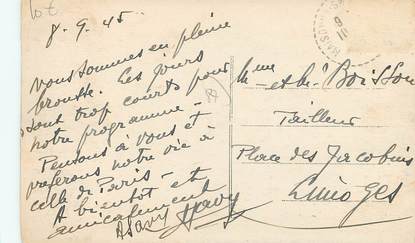 8.9.45
Vous sommes en pleine
brousse. Les jours
sont trop courts pour
notre programme -
Pensons à vous et
préferons notre vie à
celle de Paris -
A bientot et
amicalement
Mme et Mr Boisson
Tailleur
Place des Jacobins
Limoges